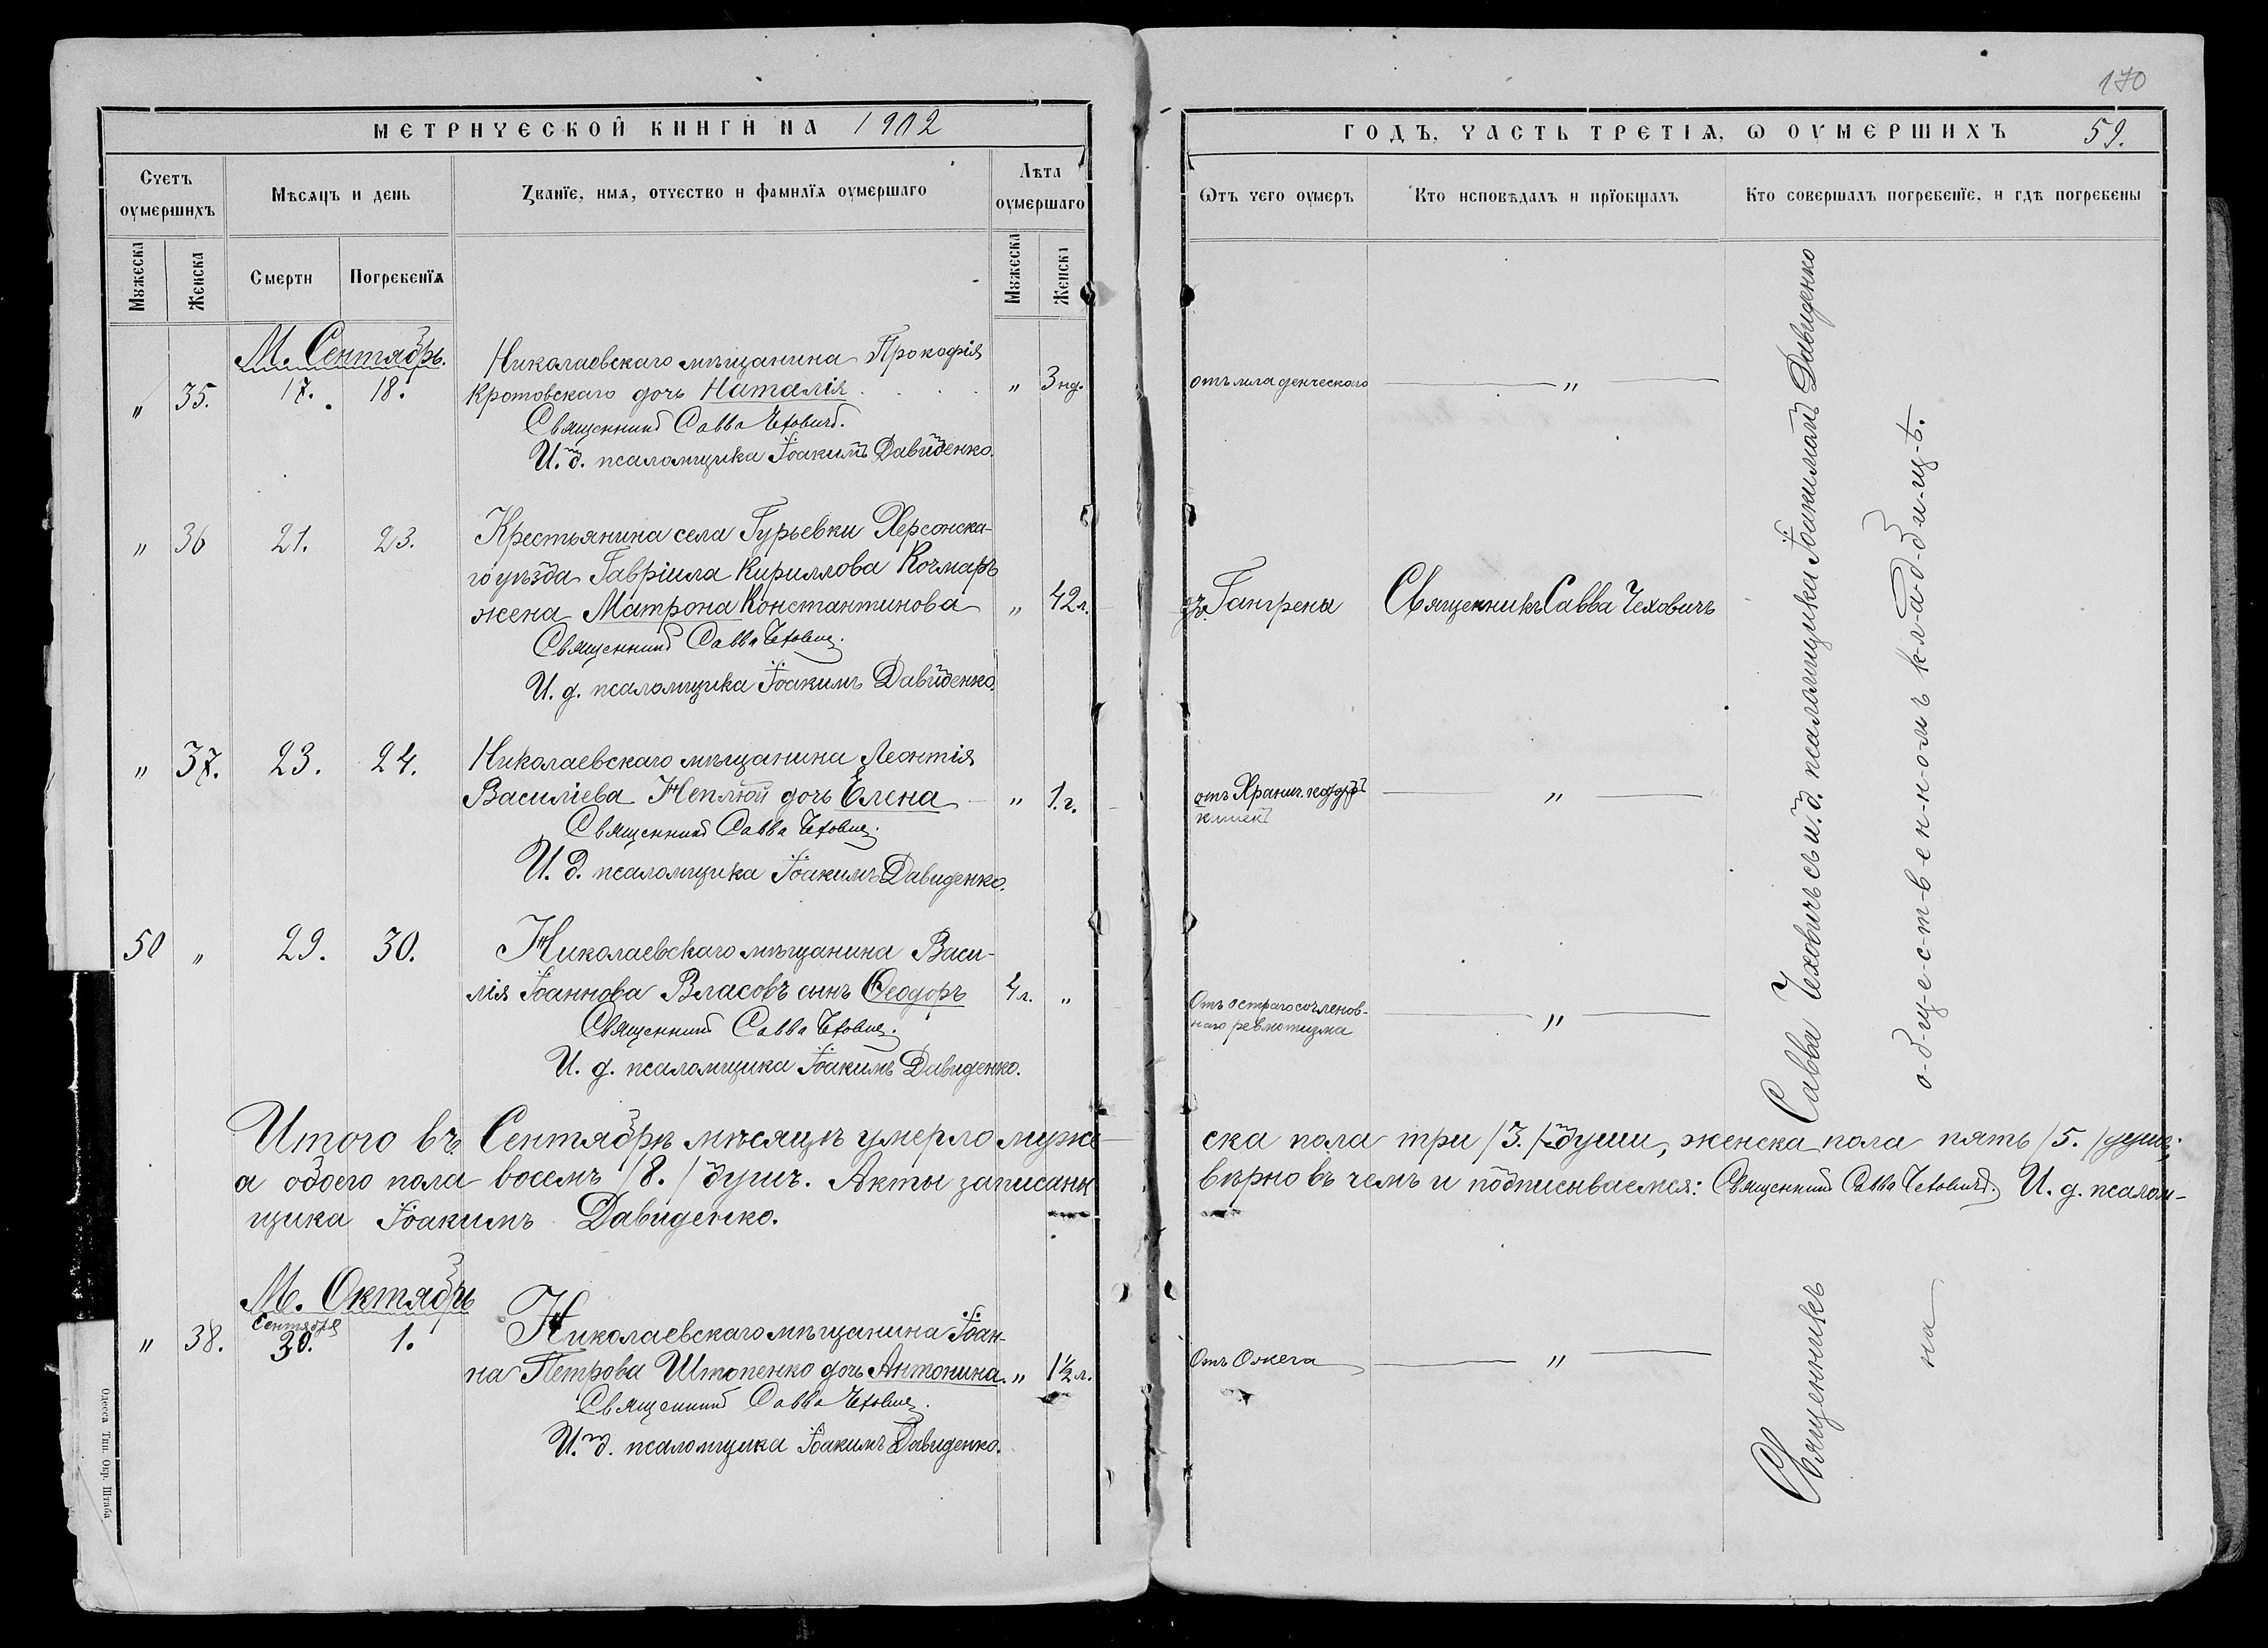 170
МЕТРИЧЕСКОЙ КНИГИ НА 1902
ГОДЪ, ЧАСТЬ ТРЕТІѦ, Ѡ ОУМЕРШИХЪ 59.
Счетъ оумершихъ
Мѣсѧцъ и день
Званїе, имѧ, отчество и фамилїѧ оумершаго
Лѣта оумершаго
Ѿтъ чего оумеръ
Кто исповѣдалъ и прїобщалъ
Кто совершалъ погребенїе, и гдѣ погребены
Мꙋжеска
Женска
Смерти
Погребенїѧ
Мꙋжеска
Женска
М. Сентябрь.
" 35. 17. 18. Николаевскаго мѣщанина Прокофія
Кротовскаго дочь Наталія " 3 нд. отъ младенческаго "
Священникъ Савва Чеховичъ.
И. д. псаломщика Іоакимъ Давиденко.
" 36 21. 23. Крестьянина села Гурьевки Херсонска-
го уѣзда Гавріила Кириллова Кочмаръ
жена Матрона Константинова " 42 л. Гангрены Священникъ Савва Чеховичъ
Священникъ Савва Чеховичъ.
И. д. псаломщика Іоакимъ Давиденко.
" 37. 23. 24. Николаевскаго мѣщанина Леонтія
Василіева Неплюй дочь Елена " 1 г. отъ Хранич. "
Священникъ Савва Чеховичъ.
И. д. псаломщика Іоакимъ Давиденко.
50 " 29. 30. Николаевскаго мѣщанина Васи-
лія Іоаннова Власовъ сынъ Ѳеодоръ 4 л. " Отъ остраго сочленов-
наго ревматизма "
Священникъ Савва Чеховичъ.
И. д. псаломщика Іоакимъ Давиденко.
Итого въ Сентябрѣ мѣсяцѣ умерло муже-
ска пола три /3./ души, женска пола пять /5./ душъ,
а обоего пола восемь /8./ душъ. Акты записаны
вѣрно въ чемъ и подписываемся: Священникъ Савва Чеховичъ. И. д. псалом-
щика Іоакимъ Давиденко.
М. Октябрь
" 38. Сентября 30. 1. Николаевскаго мѣщанина Іоан-
на Петрова Штопенко дочь Антонина. " 1½ л. Отъ Ожега "
Священникъ Савва Чеховичъ.
И. д. псаломщика Іоакимъ Давиденко.
Священникъ Савва Чеховичъ съ и. д. псаломщика Іоакимомъ Давиденко
на о-б-щ-е-с-т-в-е-н-н-о-м-ъ к-л-а-д-б-и-щ-ѣ.
Одесса Тип. Окр. Штаба